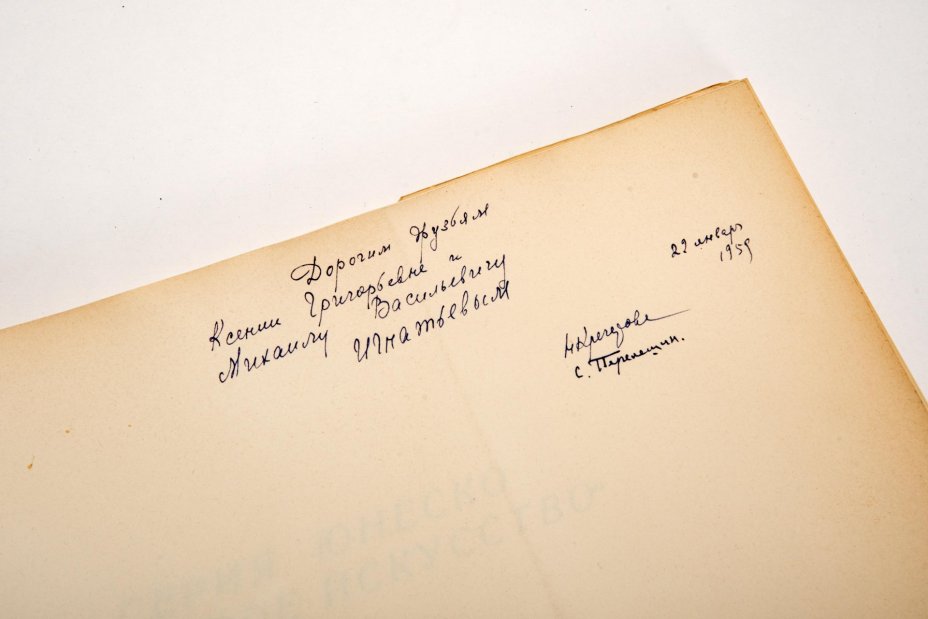 Дорогим друзьям
Ксении Григорьевне и
Михаилу Васильевичу
Игнатьевым
29 январь
1959
Н Кречетова
С. Перелешин.
СЕРИЯ ЮНЕСКО
ИСКУССТВО